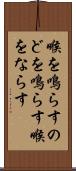 喉を鳴らすの
どを鳴らす喉
をならす